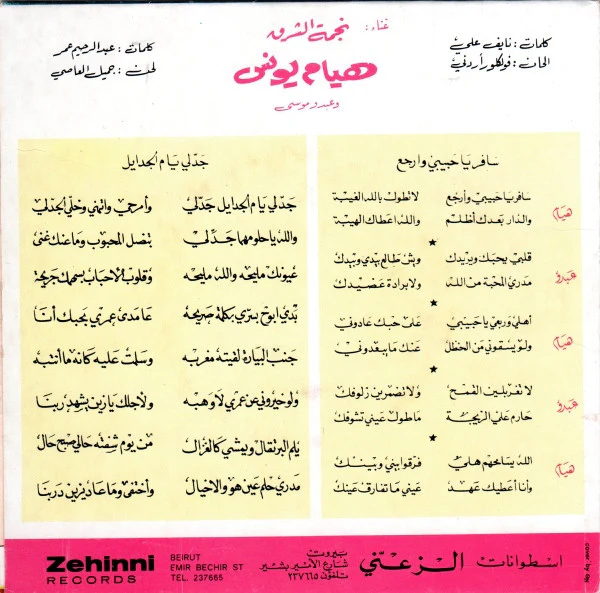 غناء: نجمة الشرق
هيام يونس
وعبدو موسى
كلمات: نايف علي
الحان: فولكلور أردني
كلمات: عبدالرحيم عمر
لحن: جميل العاصي
سافر يا حبيبي وارجع
هيام
سافر يا حبيبي وأرجع لا تطول بالله الغيبة
والدار بعدك أظلم والله اعطاك الهيبة
★
عبدو
قلبي يحبك ويريدك ويش طالع بيدي وبيدك
مدري المحبة من الله ولا برادة عضيدك
★
هيام
أهلي وربعي يا حبيبي على حبك عادوني
ولو يسقوني من الحنظل عنك ما يبعدوني
★
عبدو
لا تغربلين القمح ولا تضمرين زلوفك
حارم علي الريحة ماطول عيني تشوفك
★
هيام
الله يسامحهم هلي فرقوا بيني وبينك
وأنا أعطيك عهد عيني ما تفارق عينك
جدلي يام الجدايل
جدلي يام الجدايل جدلي وأمرحي واتهني وخلي الجدلي
والله يا حلو مهما جدلي بنضل المحبوب وما عنك غنى
عيونك مليحه والله مليحه وقلوب الاحباب بسهمك جريحة
بدي ابوح بسري بكلمة صريحه عا مدى عمري بحبك أنا
جنب البيارة لقيته مغربه وسلمت عليه كانه ما انتبه
ولو خيروني عن عمري لاوهبه ولاجلك يا زين يشهد ربنا
يلم البرتقال ويمشي كالغزال من يوم شفته حالي صبح حال
مدري حلم عين هو والا خيال وأختفى وما عاد يزين دربنا
Zehinni
RECORDS
BEIRUT
EMIR BECHIR ST
TEL. 237665
بيروت
شارع الأمير بشير
تلفون ٢٣٧٦٦٥
اسطوانات الزعني